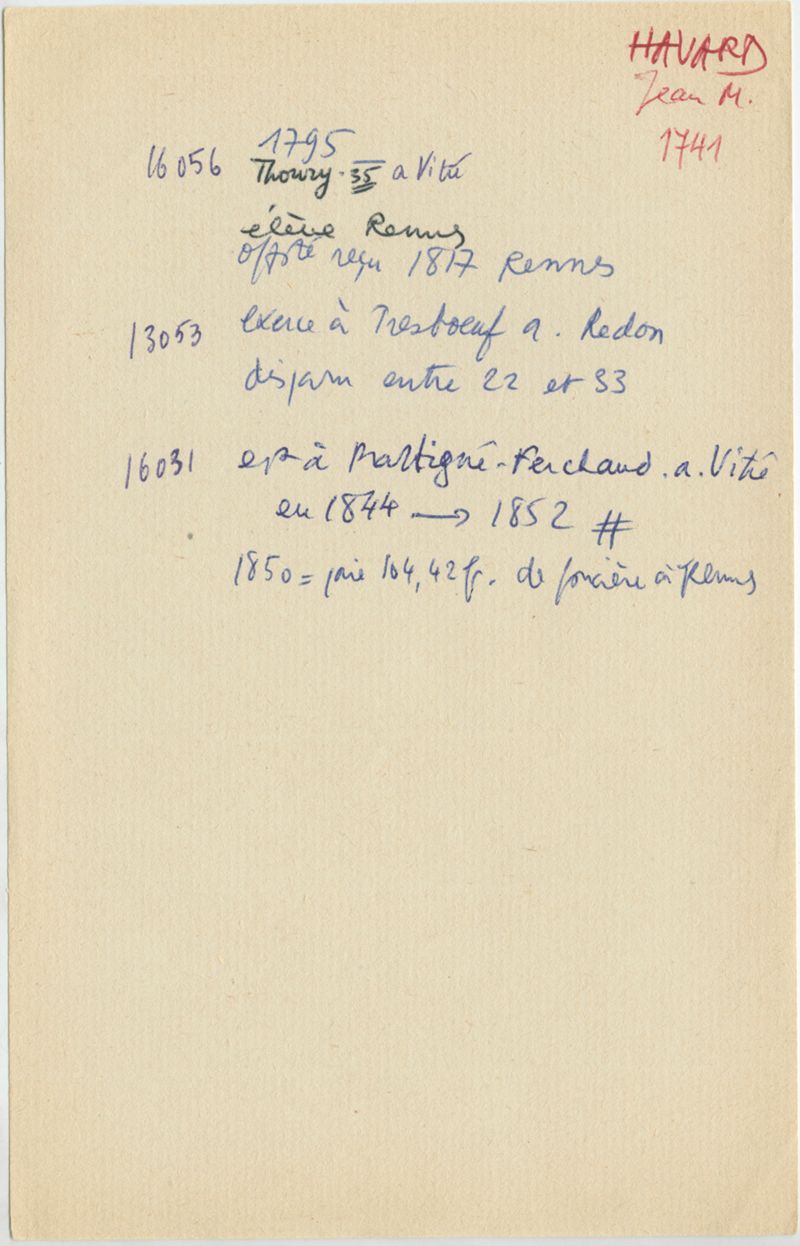 HAVARD
Jean M.
1741
1795
16056 Thowry. 35 a Vitré
élève Rennes
offsté reçu 1817 Rennes
13053 exerce à Tresboeuf a. Redon
disparu entre 22 et 33
16031 est à Martigné-Ferchaud. a. Vitré
en 1844 → 1852 #
1850 = paie 104,42 fr. de foncière à Rennes